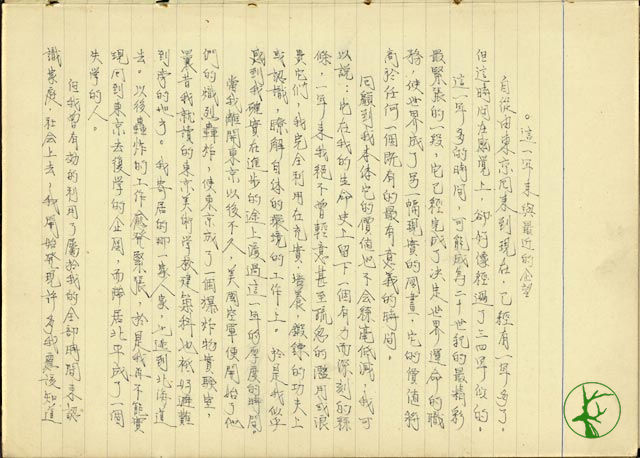 。這一年來與最近的企望
自從由東京回來到現在，已經有一年多了。
但這時間在感覺上，卻好像經過了三四年似的。
這一年多的時間，可能成為二十世紀的最精彩
最緊張的一段，它已經完成了決定世界運命的職
務，使世界成了另一幅現實的圖畫，它的價值將
高於任何一個既有的最有意義的時間。
回顧到我本体它的價值也不會絲毫低減，我可
以說：它在我的生命史上留下一個有力而深刻的線
條，一年來我絕不曾輕意甚至疏忽的濫用或浪
費它們，我完全利用在充實，培養，鍛鍊的功夫上
或認識，瞭解自体的環境的工作上。於是我似乎
感到我確實在進步的途上渡過這一年的厚度的時間
當我離開東京以後不久，美國空軍便開始了他
們的熾烈轟炸，使東京成了一個爆炸物實驗室，
曩昔我就讀的東京美術學校建築科也祇好避難
到旁的地方。我寄居的那一家人家，也逃到北海道
去。以後轟炸的工作愈發緊張，於是我再不能實
現回到東京去復學的企圖，而歸居北平成了一個
失學的人。
但我曾有効的利用了屬於我的全部時間來認
識家庭，社会上去，我開始發現許多我應該知道